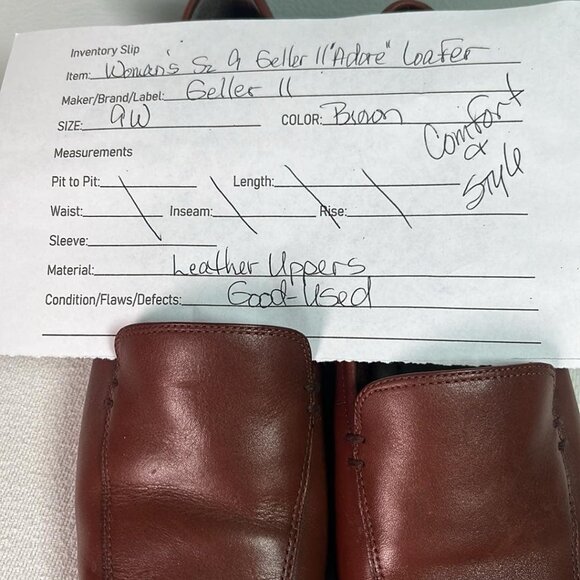 Inventory Slip
Item: Woman's Sz 9 Geller II "Adore" Loafer
Maker/Brand/Label: Geller II
SIZE: 9W COLOR: Brown
Comfort
&
Style
Measurements
Pit to Pit: Length:
Waist: Inseam: Rise:
Sleeve:
Material: Leather Uppers
Condition/Flaws/Defects: Good-Used